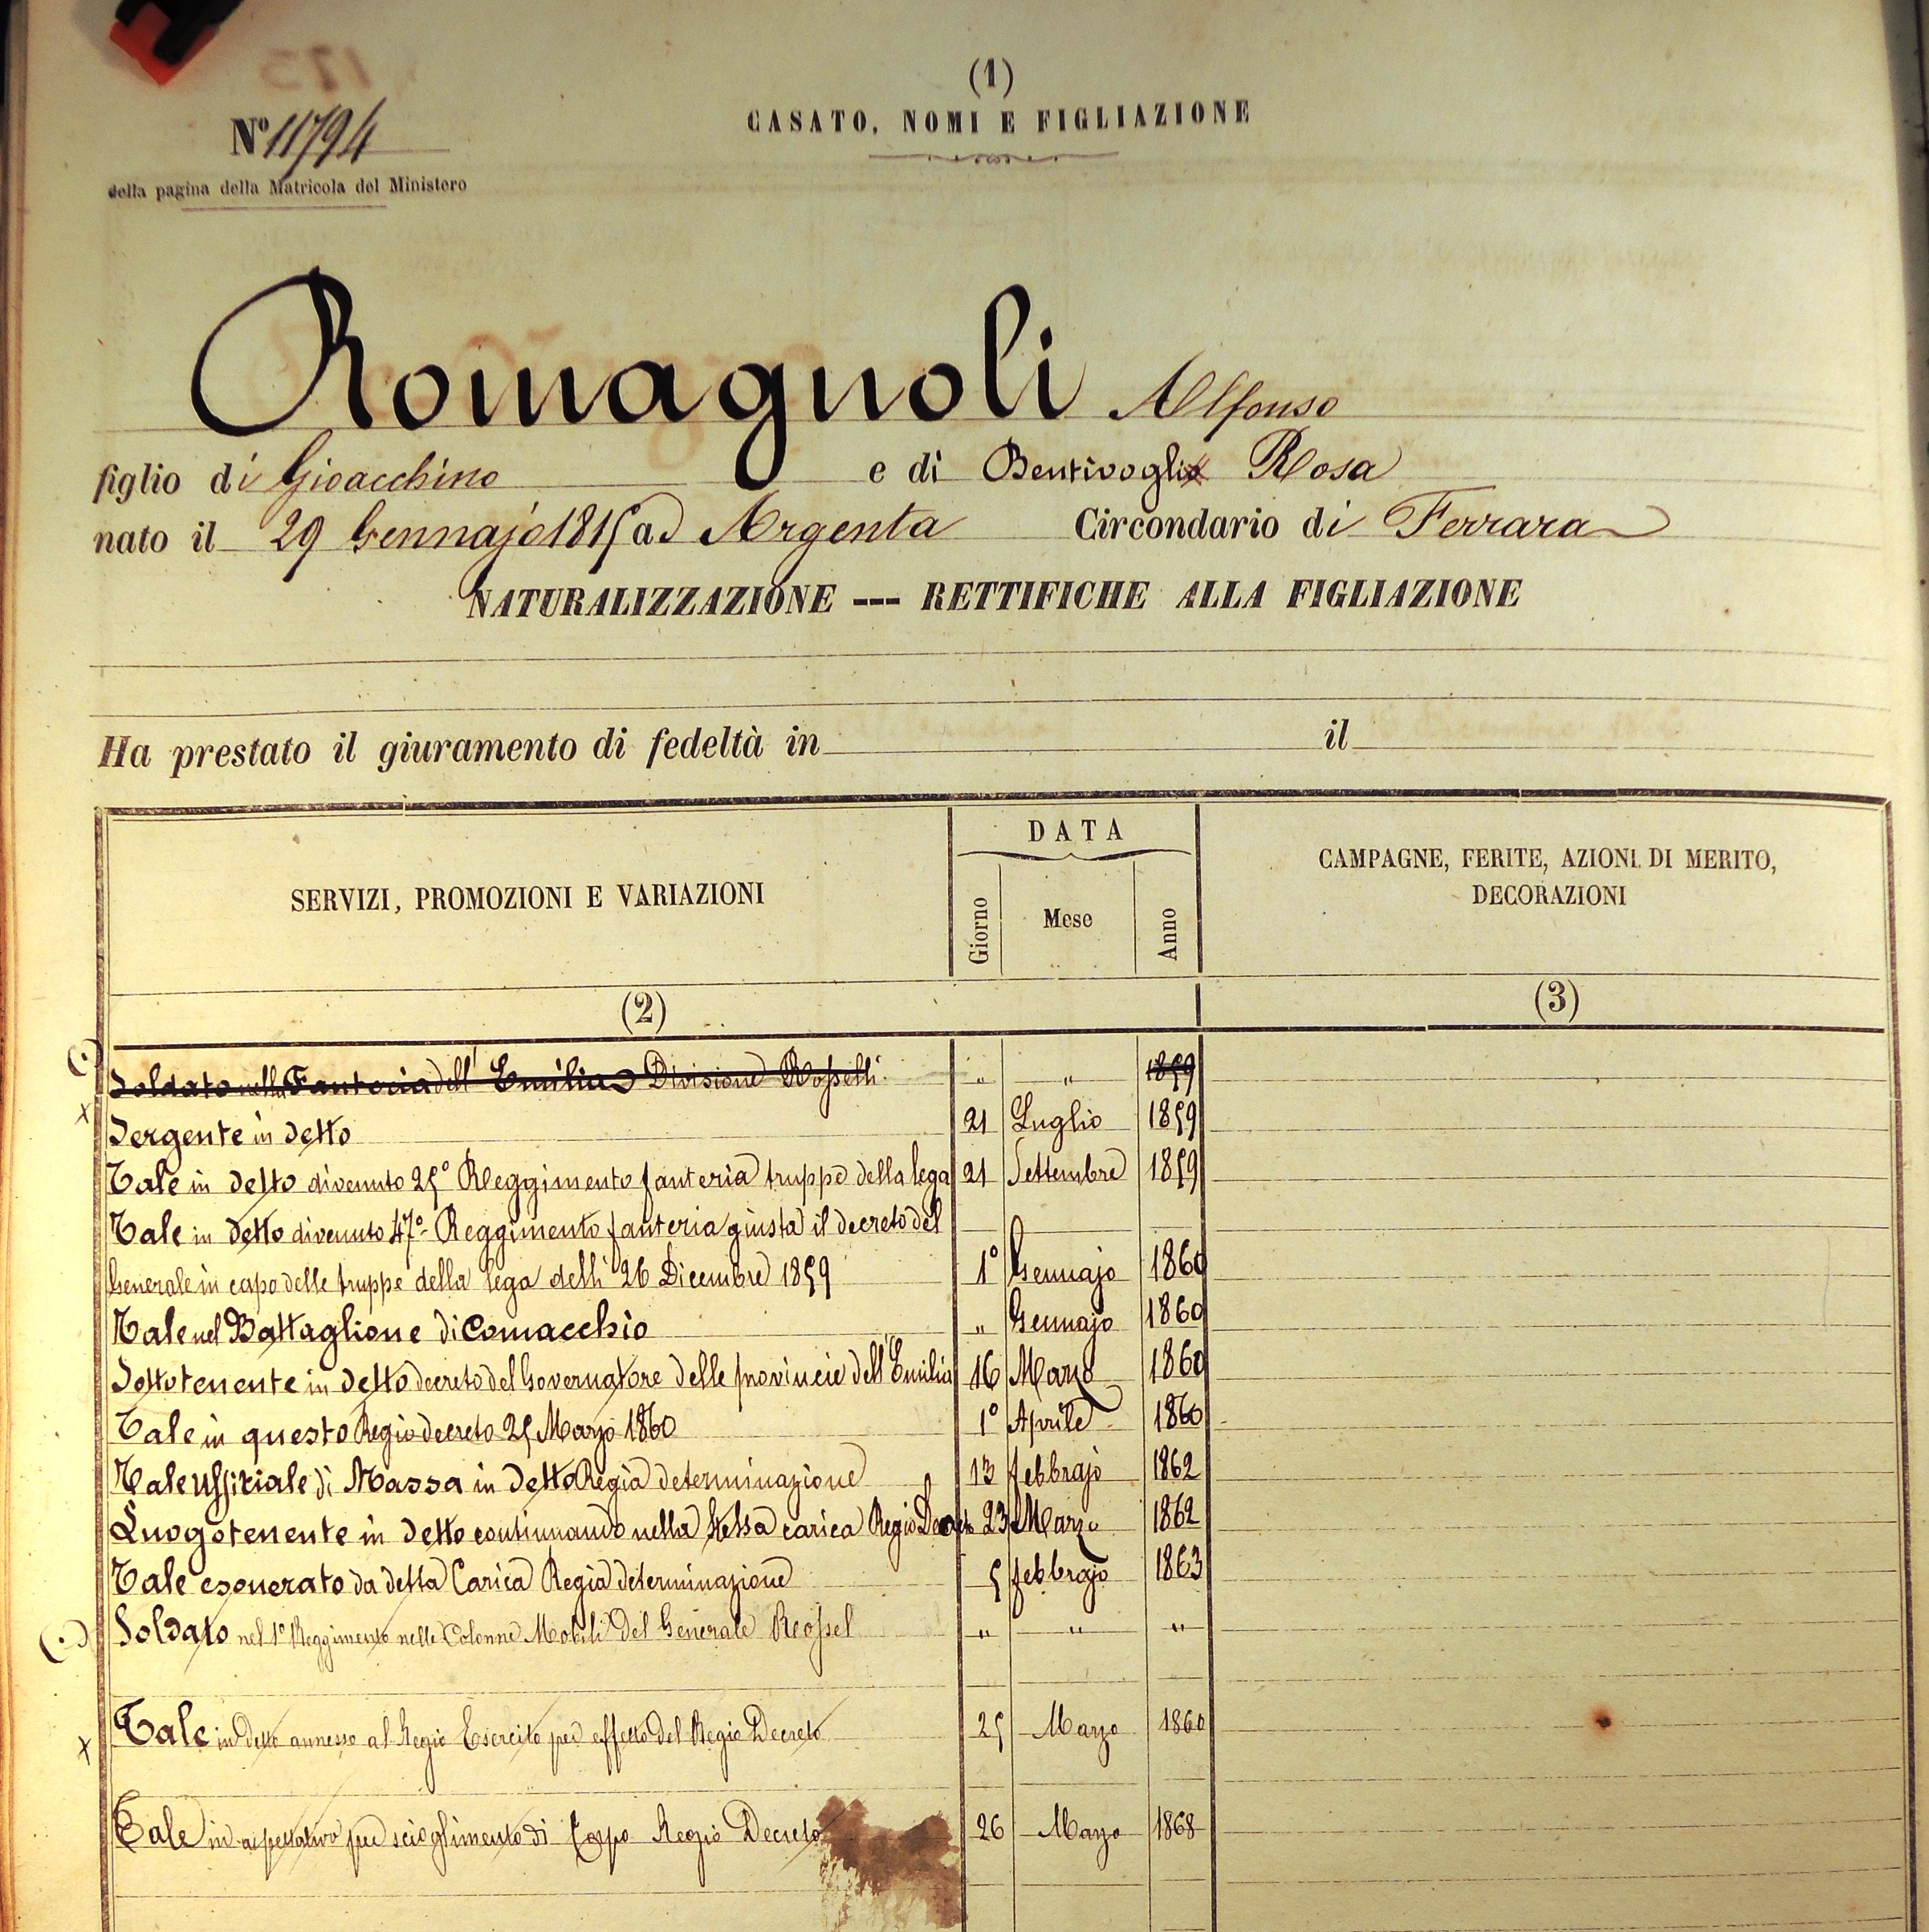 (1)
CASATO, NOMI E FIGLIAZIONE
Nº 11794
della pagina della Matricola del Ministero
Romagnoli Alfonso
figlio di Gioacchino e di Bentivoglio Rosa
nato il 29 Gennajo 1815 ad Argenta Circondario di Ferrara
NATURALIZZAZIONE --- RETTIFICHE ALLA FIGLIAZIONE
Ha prestato il giuramento di fedeltà in il
SERVIZI, PROMOZIONI E VARIAZIONI
DATA
Giorno Mese Anno
CAMPAGNE, FERITE, AZIONI DI MERITO,
DECORAZIONI
(2) (3)
Soldato nella Fanteria dell' Emilia Divisione Rosselli " " 1859
Sergente in detto 21 Luglio 1859
Tale in detto divenuto 25º Reggimento fanteria truppe della lega 21 Settembre 1859
Tale in detto divenuto 47º Reggimento fanteria giusta il decreto del
Generale in capo delle truppe della lega delli 26 Dicembre 1859 1º Gennajo 1860
Tale nel Battaglione di Comacchio " Gennajo 1860
Sottotenente in detto decreto del Governatore delle provincie dell' Emilia 16 Marzo 1860
Tale in questo Regio decreto 25 Marzo 1860 1º Aprile 1860
Tale Uffiziale di Massa in detto Regia determinazione 13 febbrajo 1862
Luogotenente in detto continuando nella stessa carica Regio Decreto 23 Marzo 1862
Tale esonerato da detta Carica Regia determinazione 5 febbrajo 1863
Soldato nel 1º Reggimento nelle Colonne Mobili del Generale Rossel " " "
Tale in detto annesso al Regio Esercito per effetto del Regio Decreto 25 Marzo 1860
Tale in aspettativa per scioglimento di Corpo Regio Decreto 26 Marzo 1868